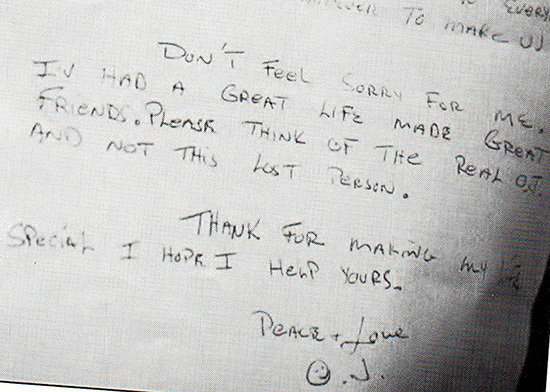 EVERY
TO MAKE US
DON'T FEEL SORRY FOR ME.
I'V HAD A GREAT LIFE MADE GREAT
FRIENDS. PLEASE THINK OF THE REAL O.J.
AND NOT THIS LOST PERSON.
THANK FOR MAKING MY LIFE
SPECIAL I HOPE I HELP YOURS.
PEACE + LOVE
☺.J.